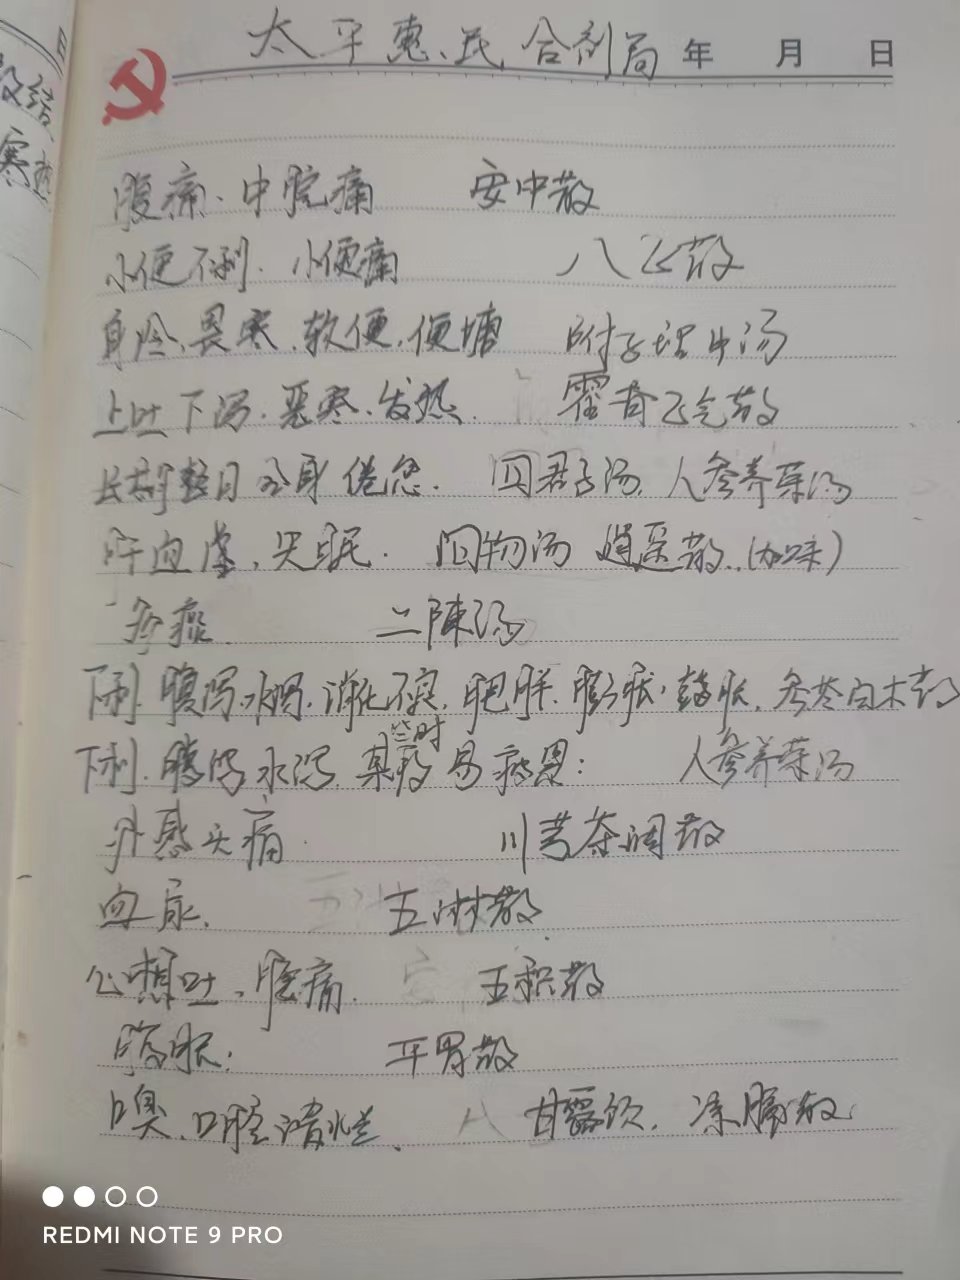 太平惠民合剂局 年 月 日
散结
寒热
腹痛.中脘痛 安中散
小便不利.小便痛 八正散
身冷、畏寒.软便.便塘 附子理中汤
上吐下泻.恶寒.发热. 霍香正气散
长期整日全身倦怠. 四君子汤.人参养荣汤
肝血虚,失眠. 四物汤 逍遥散..(加味)
痰 二陳汤
下利.腹泻.水泻.消化不良.肥胖.膨胀.鼓胀.参苓白术散
下利.腹泻水泻.某些时易疲惫: 人参养荣汤
外感头痛 川芎茶调散
血尿. 五淋散
心想吐、腹痛. 五积散
腹胀. 平胃散
口臭.口腔溃烂. 甘露饮.凉膈散
REDMI NOTE 9 PRO